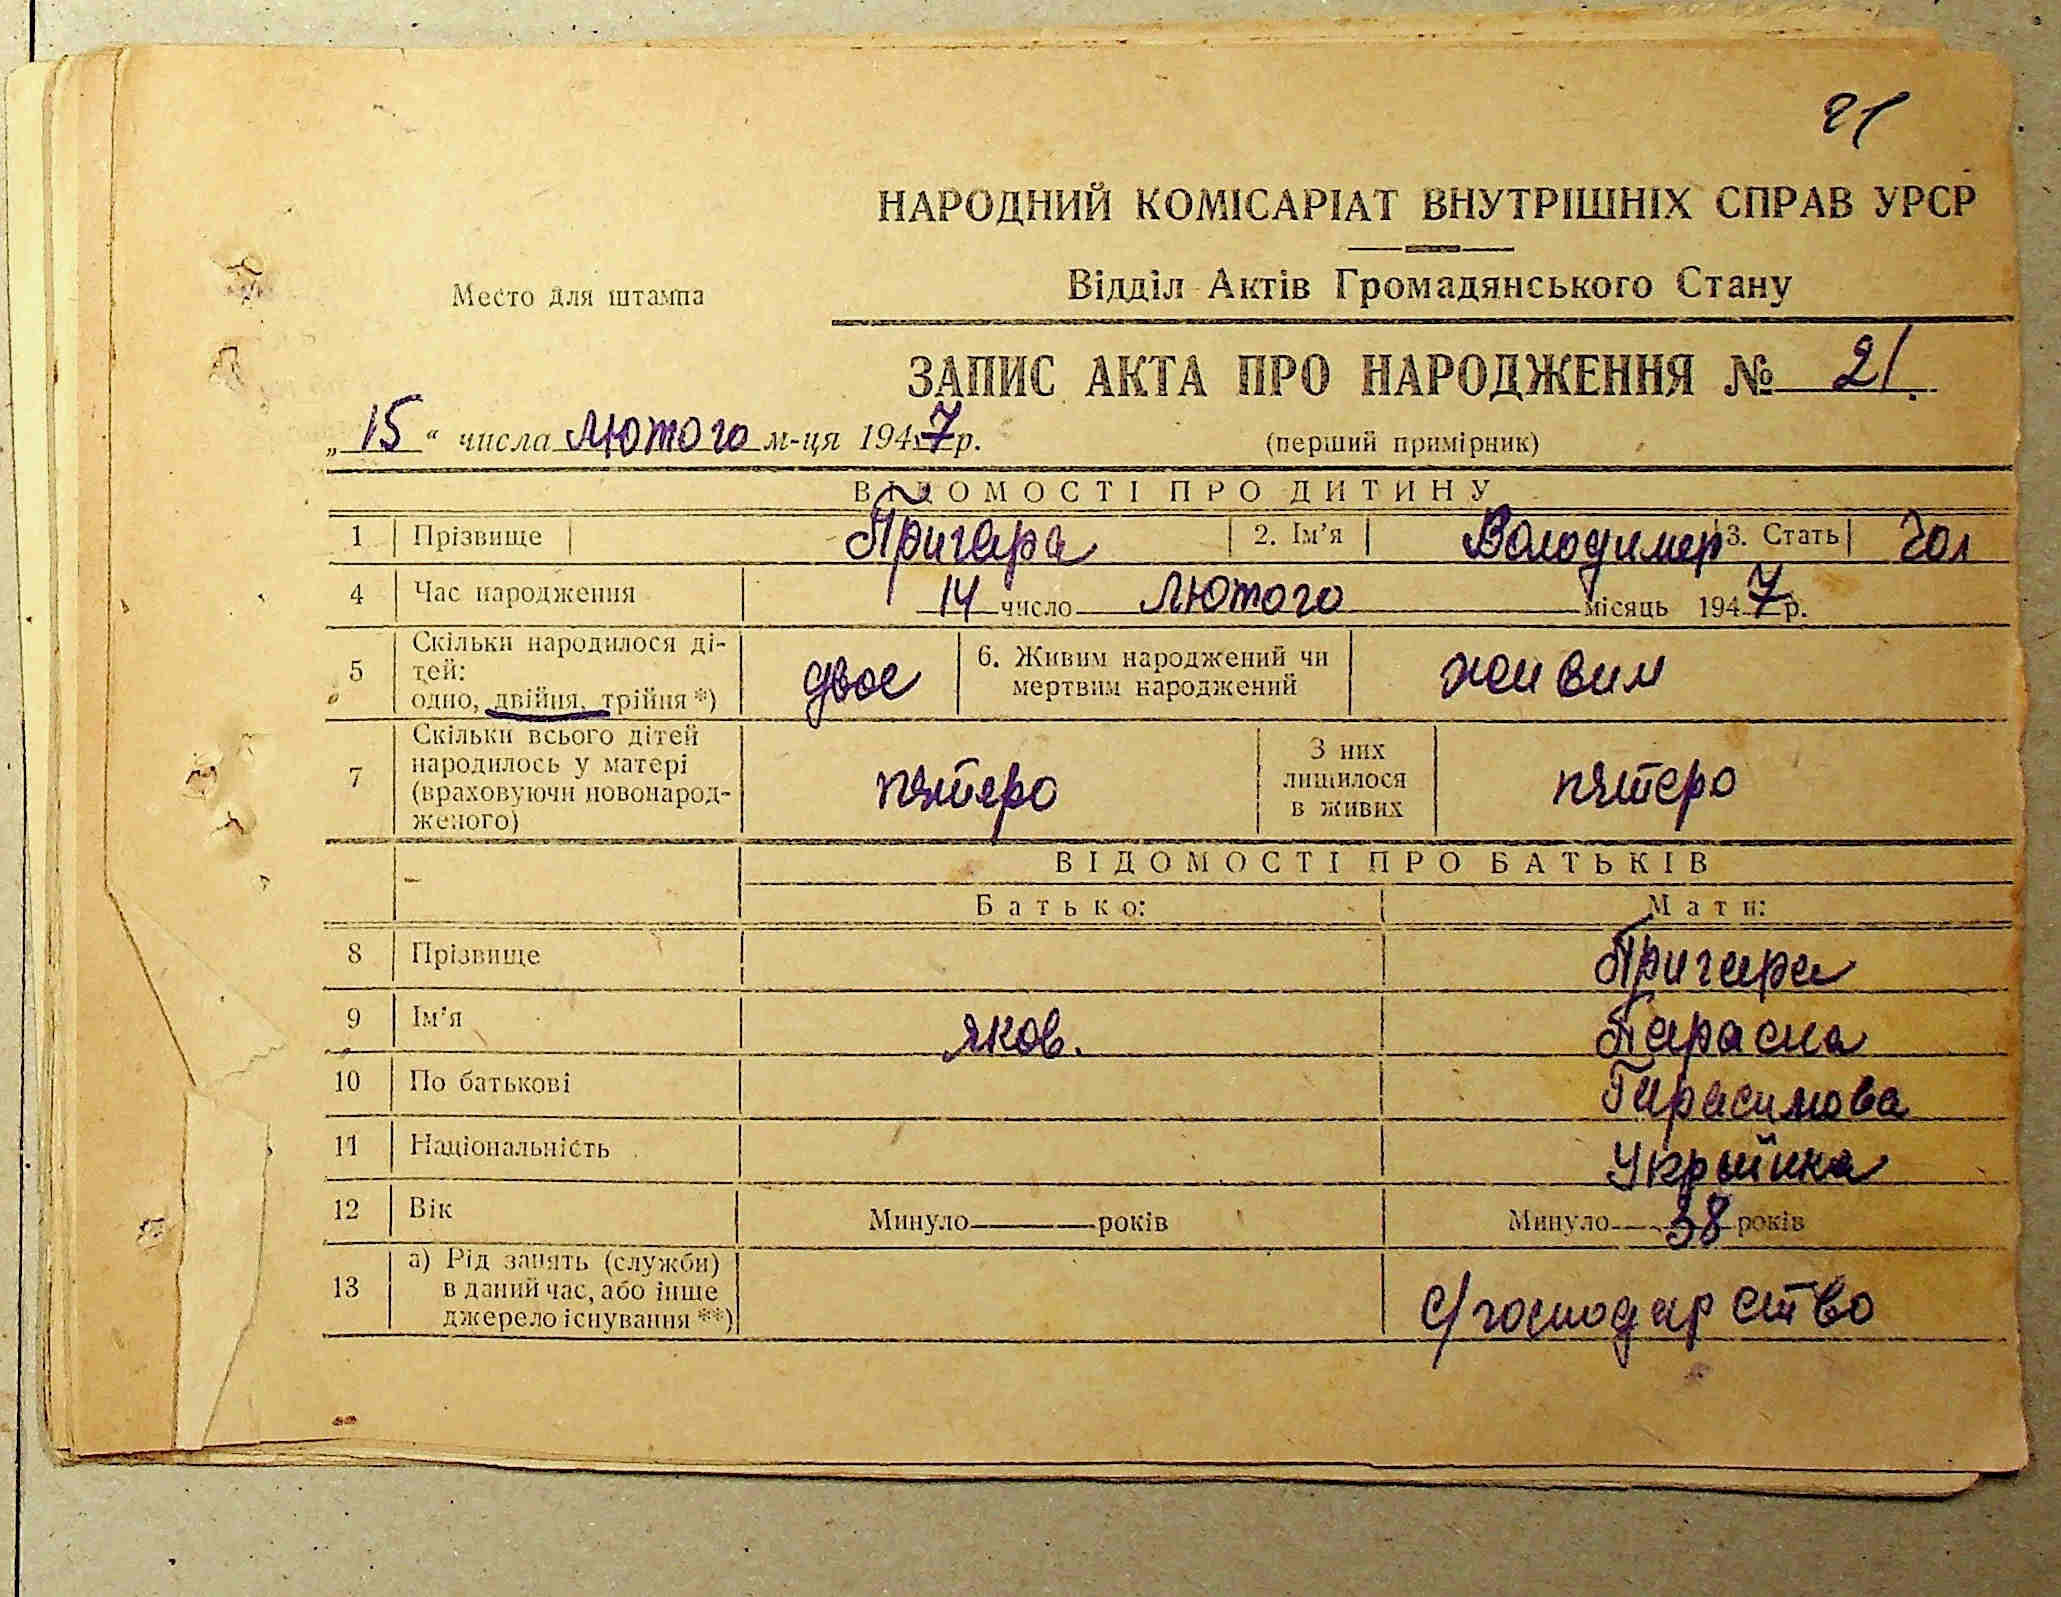 21
НАРОДНИЙ КОМІСАРІАТ ВНУТРІШНІХ СПРАВ УРСР
Место для штампа
Відділ Актів Громадянського Стану
ЗАПИС АКТА ПРО НАРОДЖЕННЯ № 21.
„15“ числа лютого м-ця 1947 р. (перший примірник)
ВІДОМОСТІ ПРО ДИТИНУ
1 Прізвище Пригара 2. Ім'я Володимер 3. Стать Чол
4 Час народження 14 число лютого місяць 1947 р.
5 Скільки народилося ді-
тей:
одно, двійня, трійня *) двое 6. Живим народжений чи
мертвим народжений живим
7 Скільки всього дітей
народилось у матері
(враховуючи новонарод-
женого) пятеро З них
лишилося
в живих пятеро
ВІДОМОСТІ ПРО БАТЬКІВ
Батько: Мати:
8 Прізвище Пригара
9 Ім'я Яков. Параска
10 По батькові Гарасимова
11 Національність Украйінка
12 Вік Минуло років Минуло 38 років
13 а) Рід занять (служби)
в даний час, або інше
джерело існування **) с/господарство